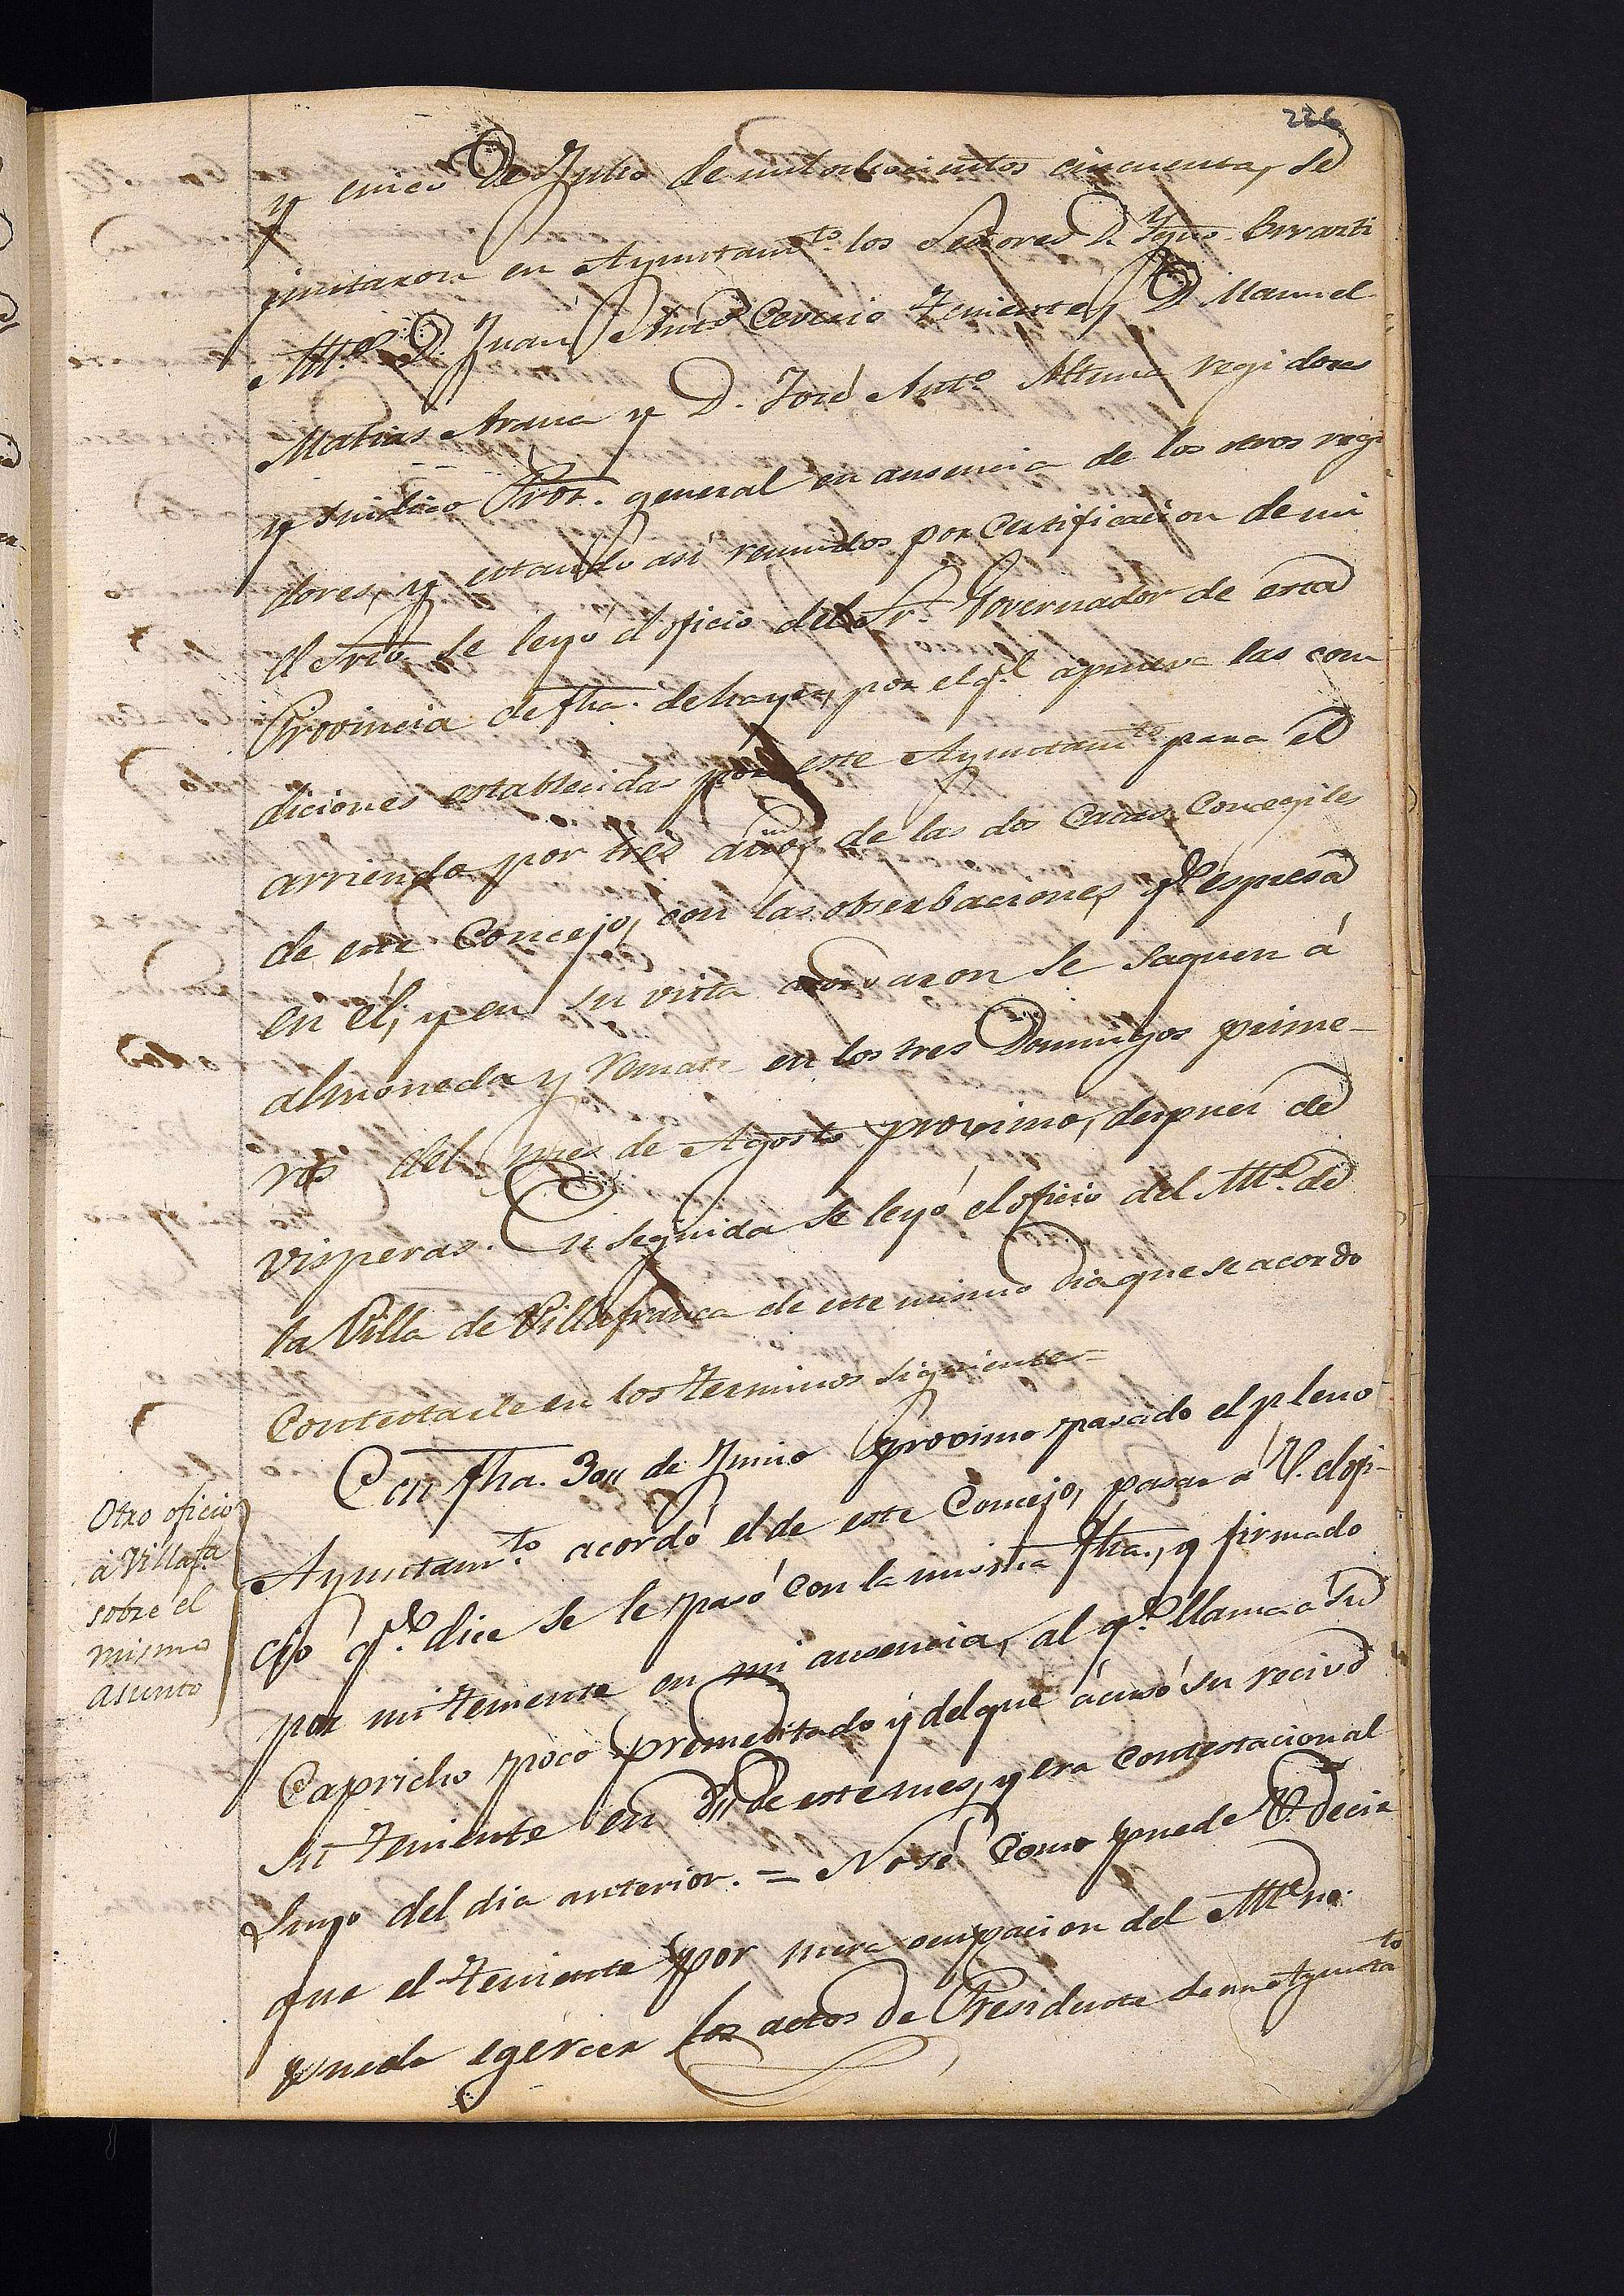 226
y cinco de Julio de mil ochocientos cincuenta, se
juntaron en Ayuntam.to los Señores D. Ygno. Errasti
Alt.e D. Juan Anto. Teniente, D. Manuel
Matias Arana y D. José Ant.o Altuna regidores
y Sindico Pror. general en ausencia de los otros regi
dores, y estando asi reunidos por Certificacion de mi
el Srio. se leyó el oficio del Sr. Governador de esta
Provincia de fha. de hayer, por el q.l aprueva las con
diciones establecidas por este Ayuntam.to para el
arriendo por tres años de las dos Casas Concegiles
de este Concejo, con las obserbaciones q.e espresa
en él; y en su vista acordaron se saquen á
almoneda y remate en los tres Domingos prime-
ros del mes de Agosto procsimo, despues de
visperas. En seguida se leyó el oficio del Alt.e de
la Villa de Villafranca de este mismo dia que se acordo
Contestarle en los terminos siguientes=
Con fha. 30,, de Junio procsimo pasado el pleno
Ayuntam.to acordó el de este Concejo, pasar á V. el ofi-
Otro oficio
á Villafa
sobre el
mismo
asunto
cio q.e dice se le pasó con la misma fha., y firmado
por mi teniente en mi ausencia, al q.e llama á su
Capricho poco premeditado y del que ácusó su recivo
su teniente en de este mes, y era Contestacion al
Suyo del dia anterior. = No sé Como puede V. decir
que el teniente por mera ocupacion del Alt.e no
pueda egercer los actos de Presidente de un Ayunta.to